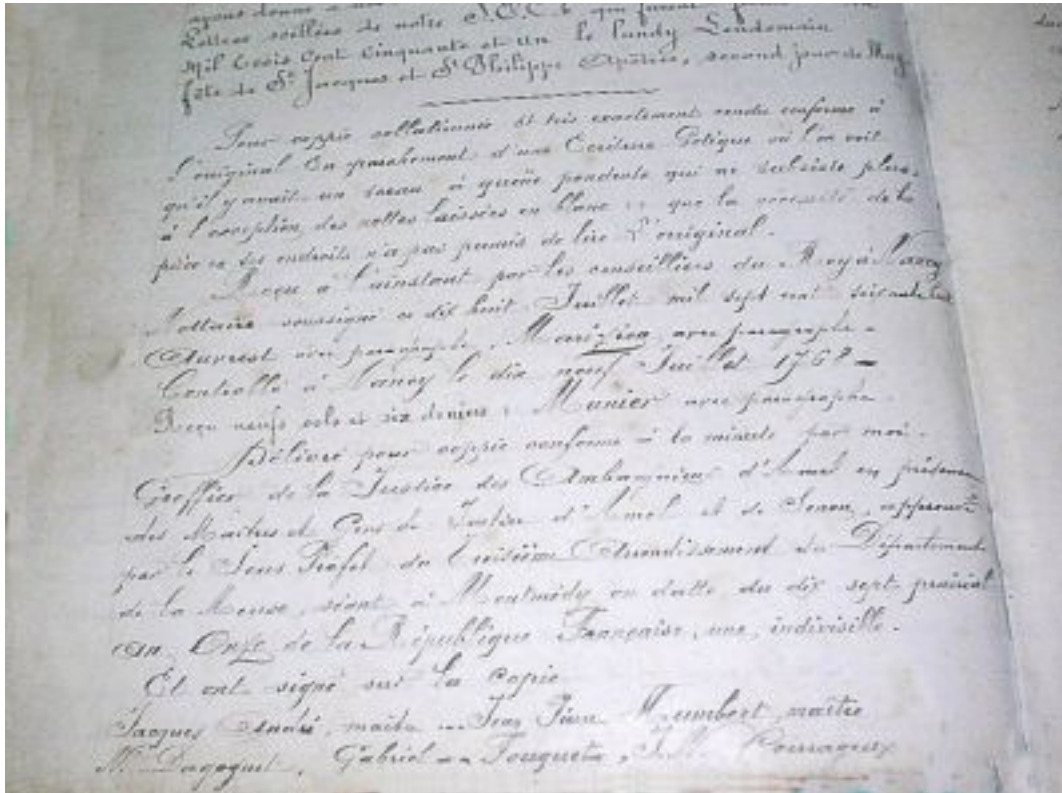 ayons donné à
Lettres scellées de notre S. qui furent
Mil trois Cent Cinquante et un le Lundy Lendemain
fête de St Jacques et St Philippe Apôtres, second jour de May
Pour coppie collationnée et très exactement rendue conforme à
l'original en parchemont d'une Ecriture Gotique où l'on voit
qu'il y avait un sceau à queüe pendente qui ne subsiste plus,
à l'exception des nottes laissées en blanc que la de la
pièce en ses endroits n'a pas permis de lire l'original.
Reçu à l'ainstant par les conseilliers du Roy à Nancy
Nottaire soussigné ce dix huit Juillet mil sept cent soixante huit
avec paragraphe, avec paragraphe.
Controllé à Nancy le dix neuf Juillet 1768 —
Reçu neufs sols et six deniers, Munier avec paragraphe.
Délivré pour coppie conforme à la minute par moi.
Greffier de la Justice des d'Amel en présence
des Maitres et Gens de Justice d'Amel et de Senon,
par le Sous Préfet du troisième Arrondissement du Département
de la Meuse, séant à Montmédy en datte du dix sept prairial
an Onze de la République Française, une, indivisille.
Et ont signé sur la Copie
Jacques André, maite Jean Pierre Humbert, maitre
N. Dagoguet, Gabriel